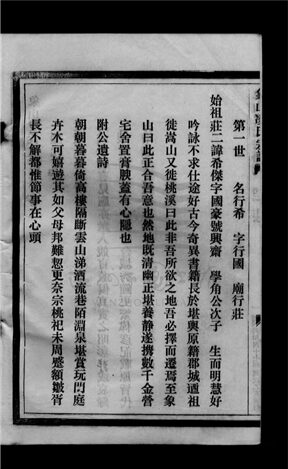 第一世　名行希　字行國　廟行莊
始祖莊二諱希傑字國豪號興齋　學角公次子　生而明慧好
吟詠不求仕途好古今奇異書籍長於堪輿原籍郡城遷祖
徙嵩山又徙桃溪曰此非吾所欲之地吾必擇而遷焉至象
山曰此正合吾意也然地既清幽正堪養靜遂携數千金營
宅舍置膏腴蓋有心隱也
附公遺詩
朝朝暮暮倚高樓隔斷雲山涕酒流巷陌淵泉堪賞玩門庭
卉木可嬉遊其如父母邦難恝更奈宗桃祀未周蹙額皺眉
長不解都惟節事在心頭